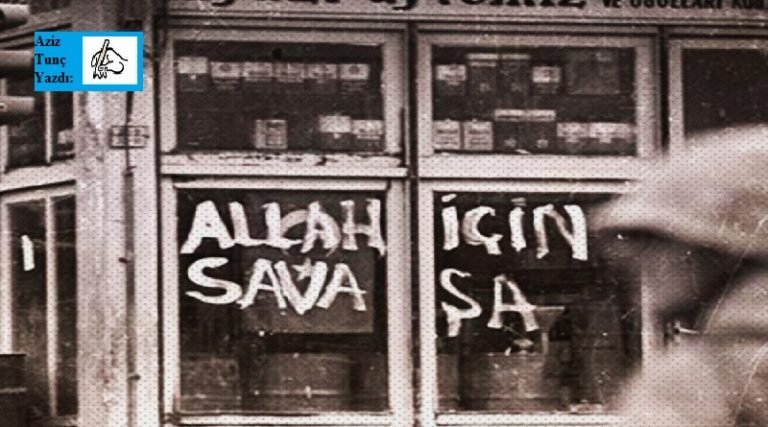 Aziz
Tunç
Yazdı:
VE OĞULLARI
ALLAH İÇİN
SAVAŞA